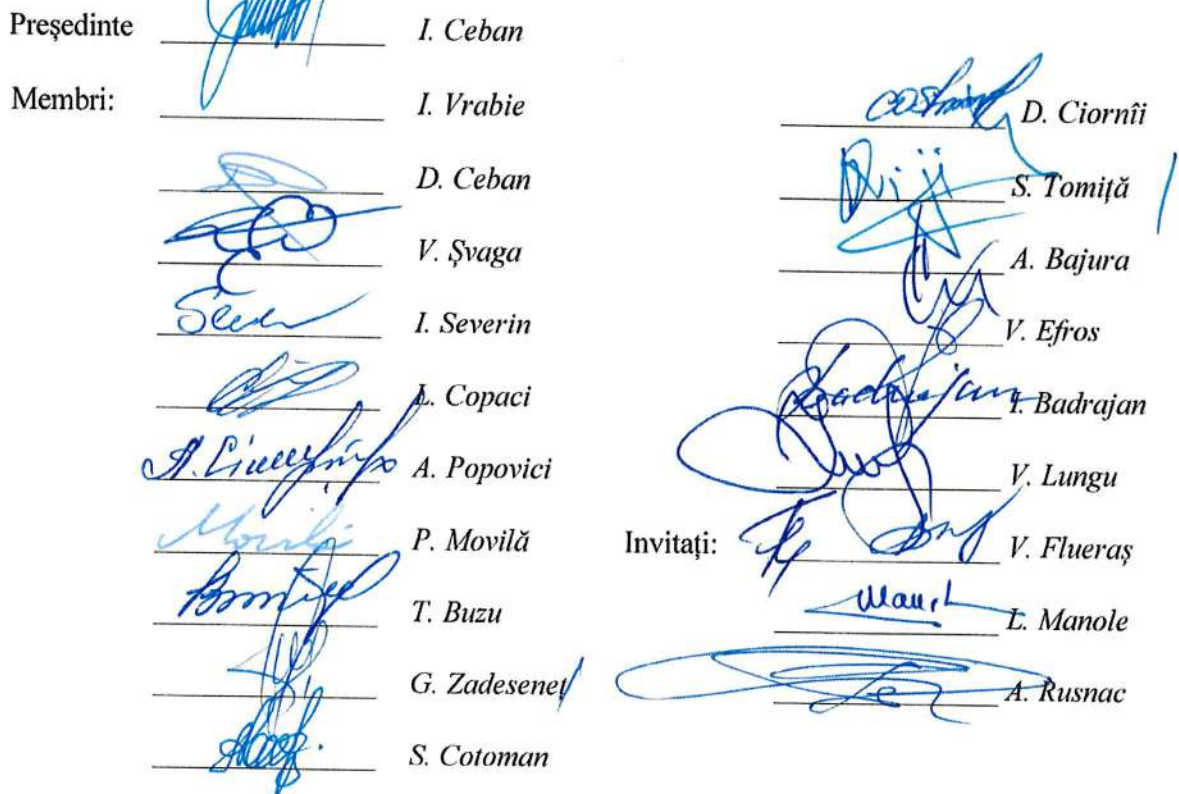 Președinte I. Ceban
Membri: I. Vrabie
D. Ceban
V. Șvaga
I. Severin
L. Copaci
A. Popovici
P. Movilă
T. Buzu
G. Zadeseneț
S. Cotoman
D. Ciornîi
S. Tomiță
A. Bajura
V. Efros
Badrajan I. Badrajan
V. Lungu
Invitați: V. Flueraș
L. Manole
A. Rusnac